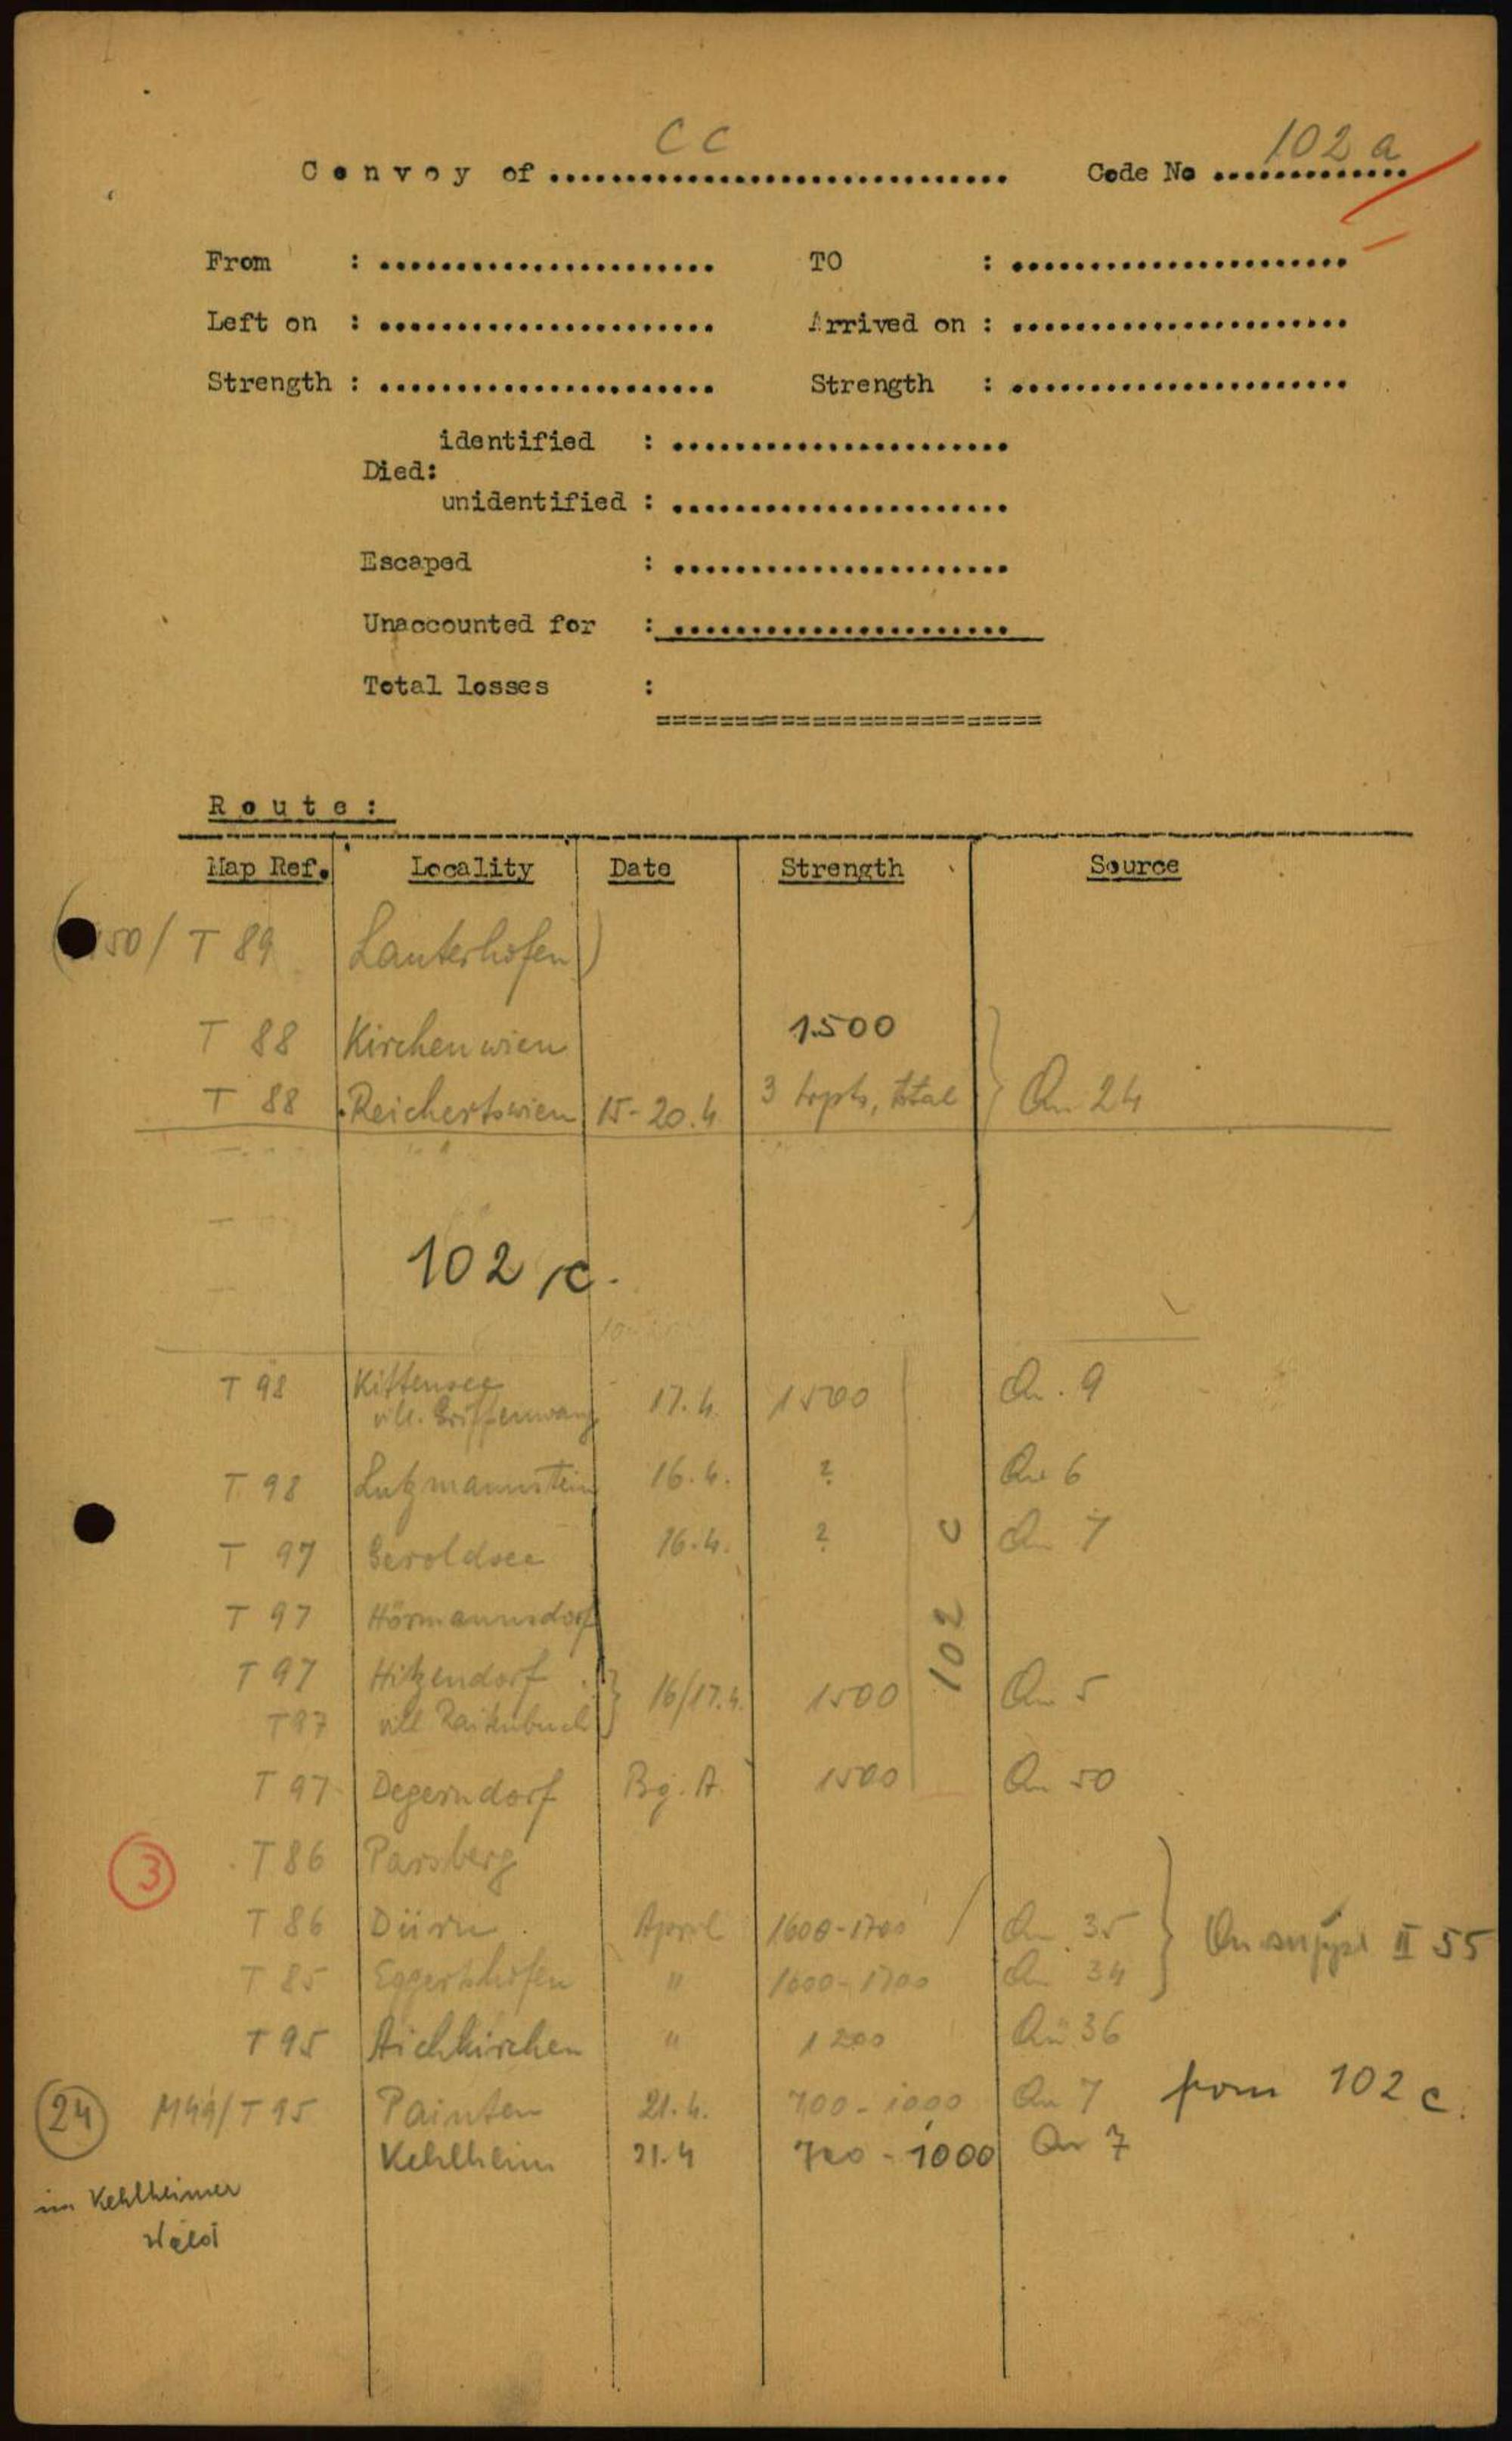 Convoy of CC Code No 102 a
From : TO :
Left on : Arrived on :
Strength : Strength :
identified :
Died:
unidentified :
Escaped :
Unaccounted for :
Total losses :
Route:
Map Ref. Locality Date Strength Source
50/ T 89 Lauterhofen)
T 88 Kirchenwien 1500
T 88 Reichertswien 15-20.4 3 trpts, total } An 24
102 c.
T 98 Kittensee 17.4. 1500 An. 9
vill. Griffenwang
T 98 Lutzmannstein 16.4. ? An 6
T 97 Geroldsee 16.4. ? An 7
T 97 Hörmannsdorf
102 c
T 97 Hitzendorf } 16/17.4. 1500 An 5
T 97 vill
T 97 Degerndorf Bg. A. 1500 An 50
3 T 86 Parsberg
T 86 Dürn April 1600-1700 An 35
T 85 Eggertshofen " 1600-1700 An 34 } II 55
T 95 Aichkirchen " 1200 An 36
24 M49/T 95 Painten 21.4. 700-1000 An 7 from 102 c.
Kehlheim 21.4 700-1000 An 7
im Kehlheimer
Wald